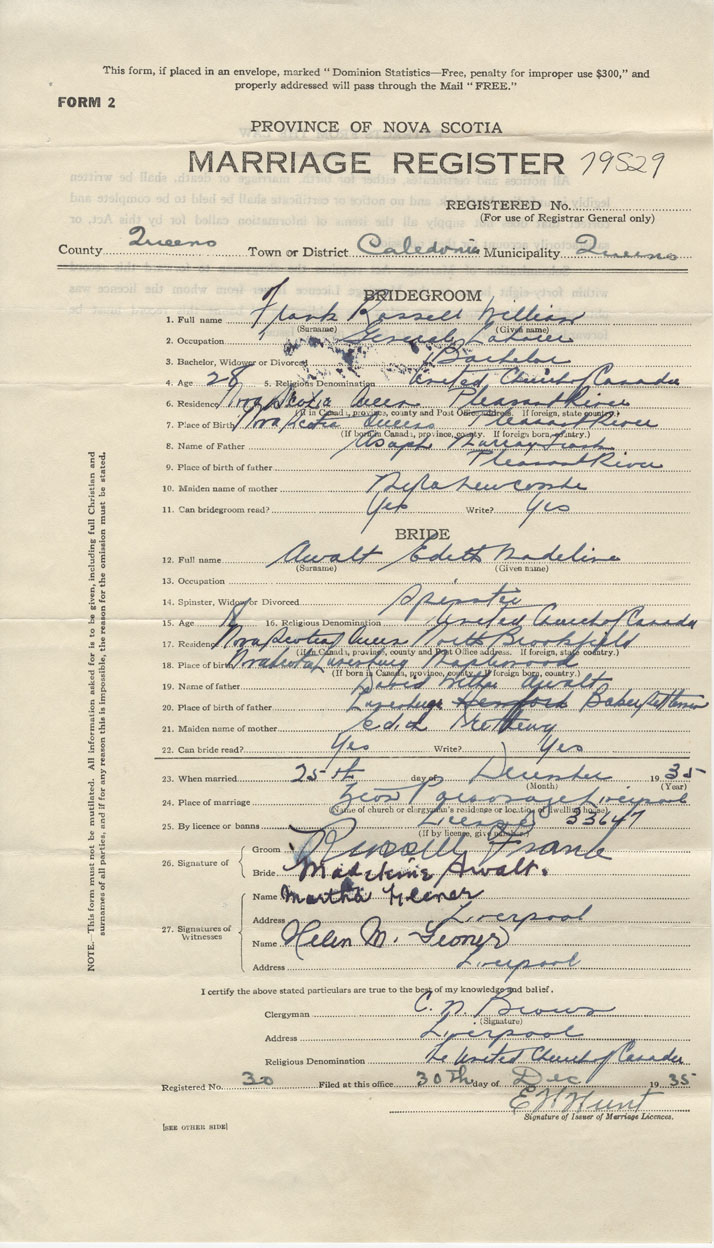 This form, if placed in an envelope, marked "Dominion Statistics—Free, penalty for improper use $300," and
properly addressed will pass through the Mail "FREE."
FORM 2
PROVINCE OF NOVA SCOTIA
MARRIAGE REGISTER 19529
REGISTERED No.
(For use of Registrar General only)
County Queens Town or District Caledonia Municipality Queens
BRIDEGROOM
1. Full name Frank Russell William
(Surname) (Given name)
2. Occupation General Laborer
3. Bachelor, Widower or Divorced Bachelor
4. Age 28 5. Religious Denomination United Church of Canada
6. Residence Nova Scotia Queens Pleasant River
(If in Canada, province, county and Post Office address. If foreign, state country.)
7. Place of Birth Nova Scotia Queens Pleasant River
(If born in Canada, province, county. If foreign born, country.)
8. Name of Father Asaph Murray Frank
9. Place of birth of father Pleasant River
10. Maiden name of mother Newcombe
11. Can bridegroom read? Yes Write? Yes
BRIDE
12. Full name Awalt Edith Madeline
(Surname) (Given name)
13. Occupation
14. Spinster, Widow or Divorced Spinster
15. Age 16. Religious Denomination United Church of Canada
17. Residence Nova Scotia Queens North Brookfield
(If in Canada, province, county and Post Office address. If foreign, state country.)
18. Place of birth Nova Scotia Lunenburg Maplewood
(If born in Canada, province, county. If foreign born, country.)
19. Name of father David Awalt
20. Place of birth of father Lunenburg Baker Settlement
21. Maiden name of mother
22. Can bride read? Yes Write? Yes
23. When married 25th day of December 1935
(Month) (Year)
24. Place of marriage Zion Parsonage Liverpool
(Name of church or clergyman's residence or location of dwelling house.)
25. By licence or banns License 33647
(If by license, give number)
26. Signature of
Groom Russell Frank
Bride Madeline Awalt.
27. Signatures of Witnesses
Name Martha
Address Liverpool
Name Helen M.
Address Liverpool
I certify the above stated particulars are true to the best of my knowledge and belief.
Clergyman C. N. Brown
(Signature)
Address Liverpool
Religious Denomination The United Church of Canada
Registered No. 30 Filed at this office 30th day of Dec 1935
E W Hunt
Signature of Issuer of Marriage Licences.
[SEE OTHER SIDE]
NOTE.—This form must not be mutilated. All information asked for is to be given, including full Christian and
surnames of all parties, and if for any reason this is impossible, the reason for the omission must be stated.